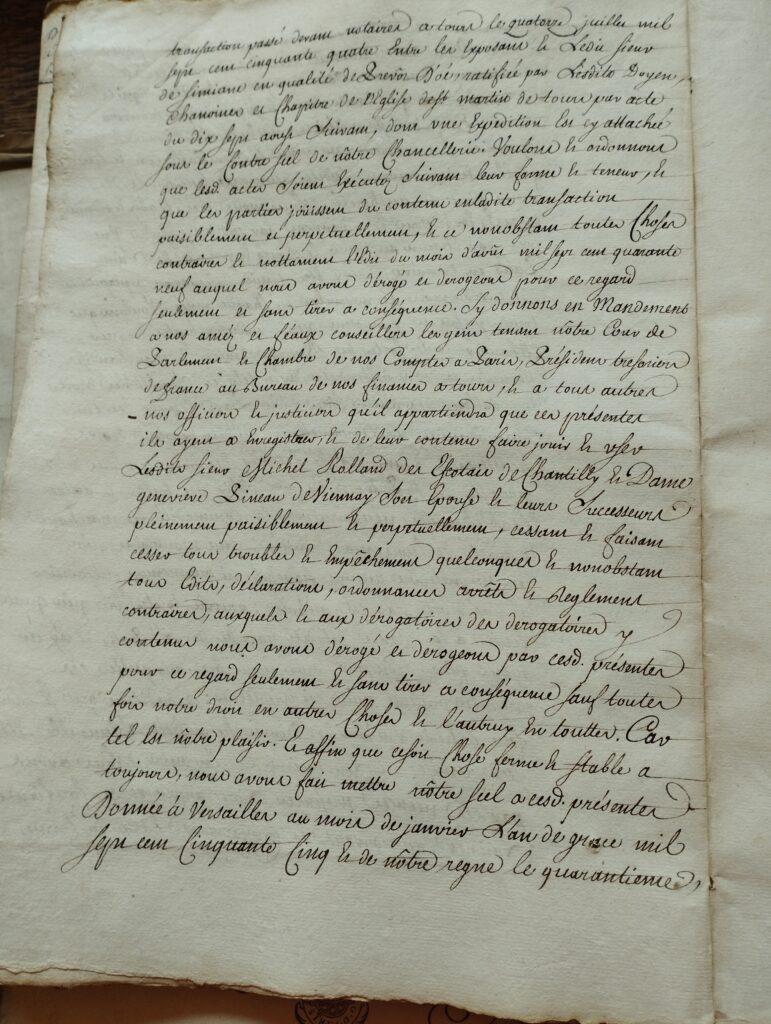 transaction passé devant notaires a tours le quatorze juillet mil
sept cent cinquante quatre Entre les Exposans et Ledit sieur
de Simiane en qualité de Prevôt D'oé, ratifiée par Lesdits Doyen,
Chanoines et Chapitre de l'Eglise de St martin de tours par acte
du dix sept aoust Suivant, dont une Expedition Est cy attachée
sous le Contre scel de nôtre Chancellerie. Voulons et ordonnons
que lesd. actes Soient Exécutéz Suivant leur forme et teneur, et
que les parties joüissent du contenu en ladite transaction
paisiblement et perpetuellement, et ce nonobstant toutes Choses
contraires et nottament l'Edit du mois d'aoust mil sept cent quarante
neuf auquel nous avons dérogé et derogeons pour ce regard
seulement et sans tirer a conséquence. Sy donnons en Mandement
a nos améz et féaux conseillers les gens tenans nôtre Cour de
Parlement et Chambre de nos Comptes a Paris, Présidens tresoriers
de france au Bureau de nos finances a tours, et a tous autres
nos officiers et justiciers qu'il appartiendra que ces présentes
ils ayent a Enregistrer, et de leur contenu faire jouir et user
Lesdits sieur Michel Rolland des Escotais de Chantilly et Dame
geneviève Pineau de Viennay Son Epouse et leurs Successeurs
pleinement paisiblement et perpetuellement, cessant et faisant
cesser tous troubles et Empêchement quelconques et nonobstant
tous Edits, déclarations, ordonnances arrêts et Reglement
contraires, auxquels et aux dérogatoires des derogatoires y
contenus nous avons dérogé et dérogeons par cesd. présentes
pour ce regard seulement et sans tirer a conséquence sauf toutes
fois notre droit en autres Choses et l'autruy en touttes. Car
tel Est nôtre plaisir. Et affin que ce soit Chose ferme et stable a
toujours, nous avons fait mettre nôtre scel a cesd. présentes
Donnée à Versailles au mois de janvier L'an de grace mil
sept cent Cinquante Cinq et de nôtre regne le quarantieme,